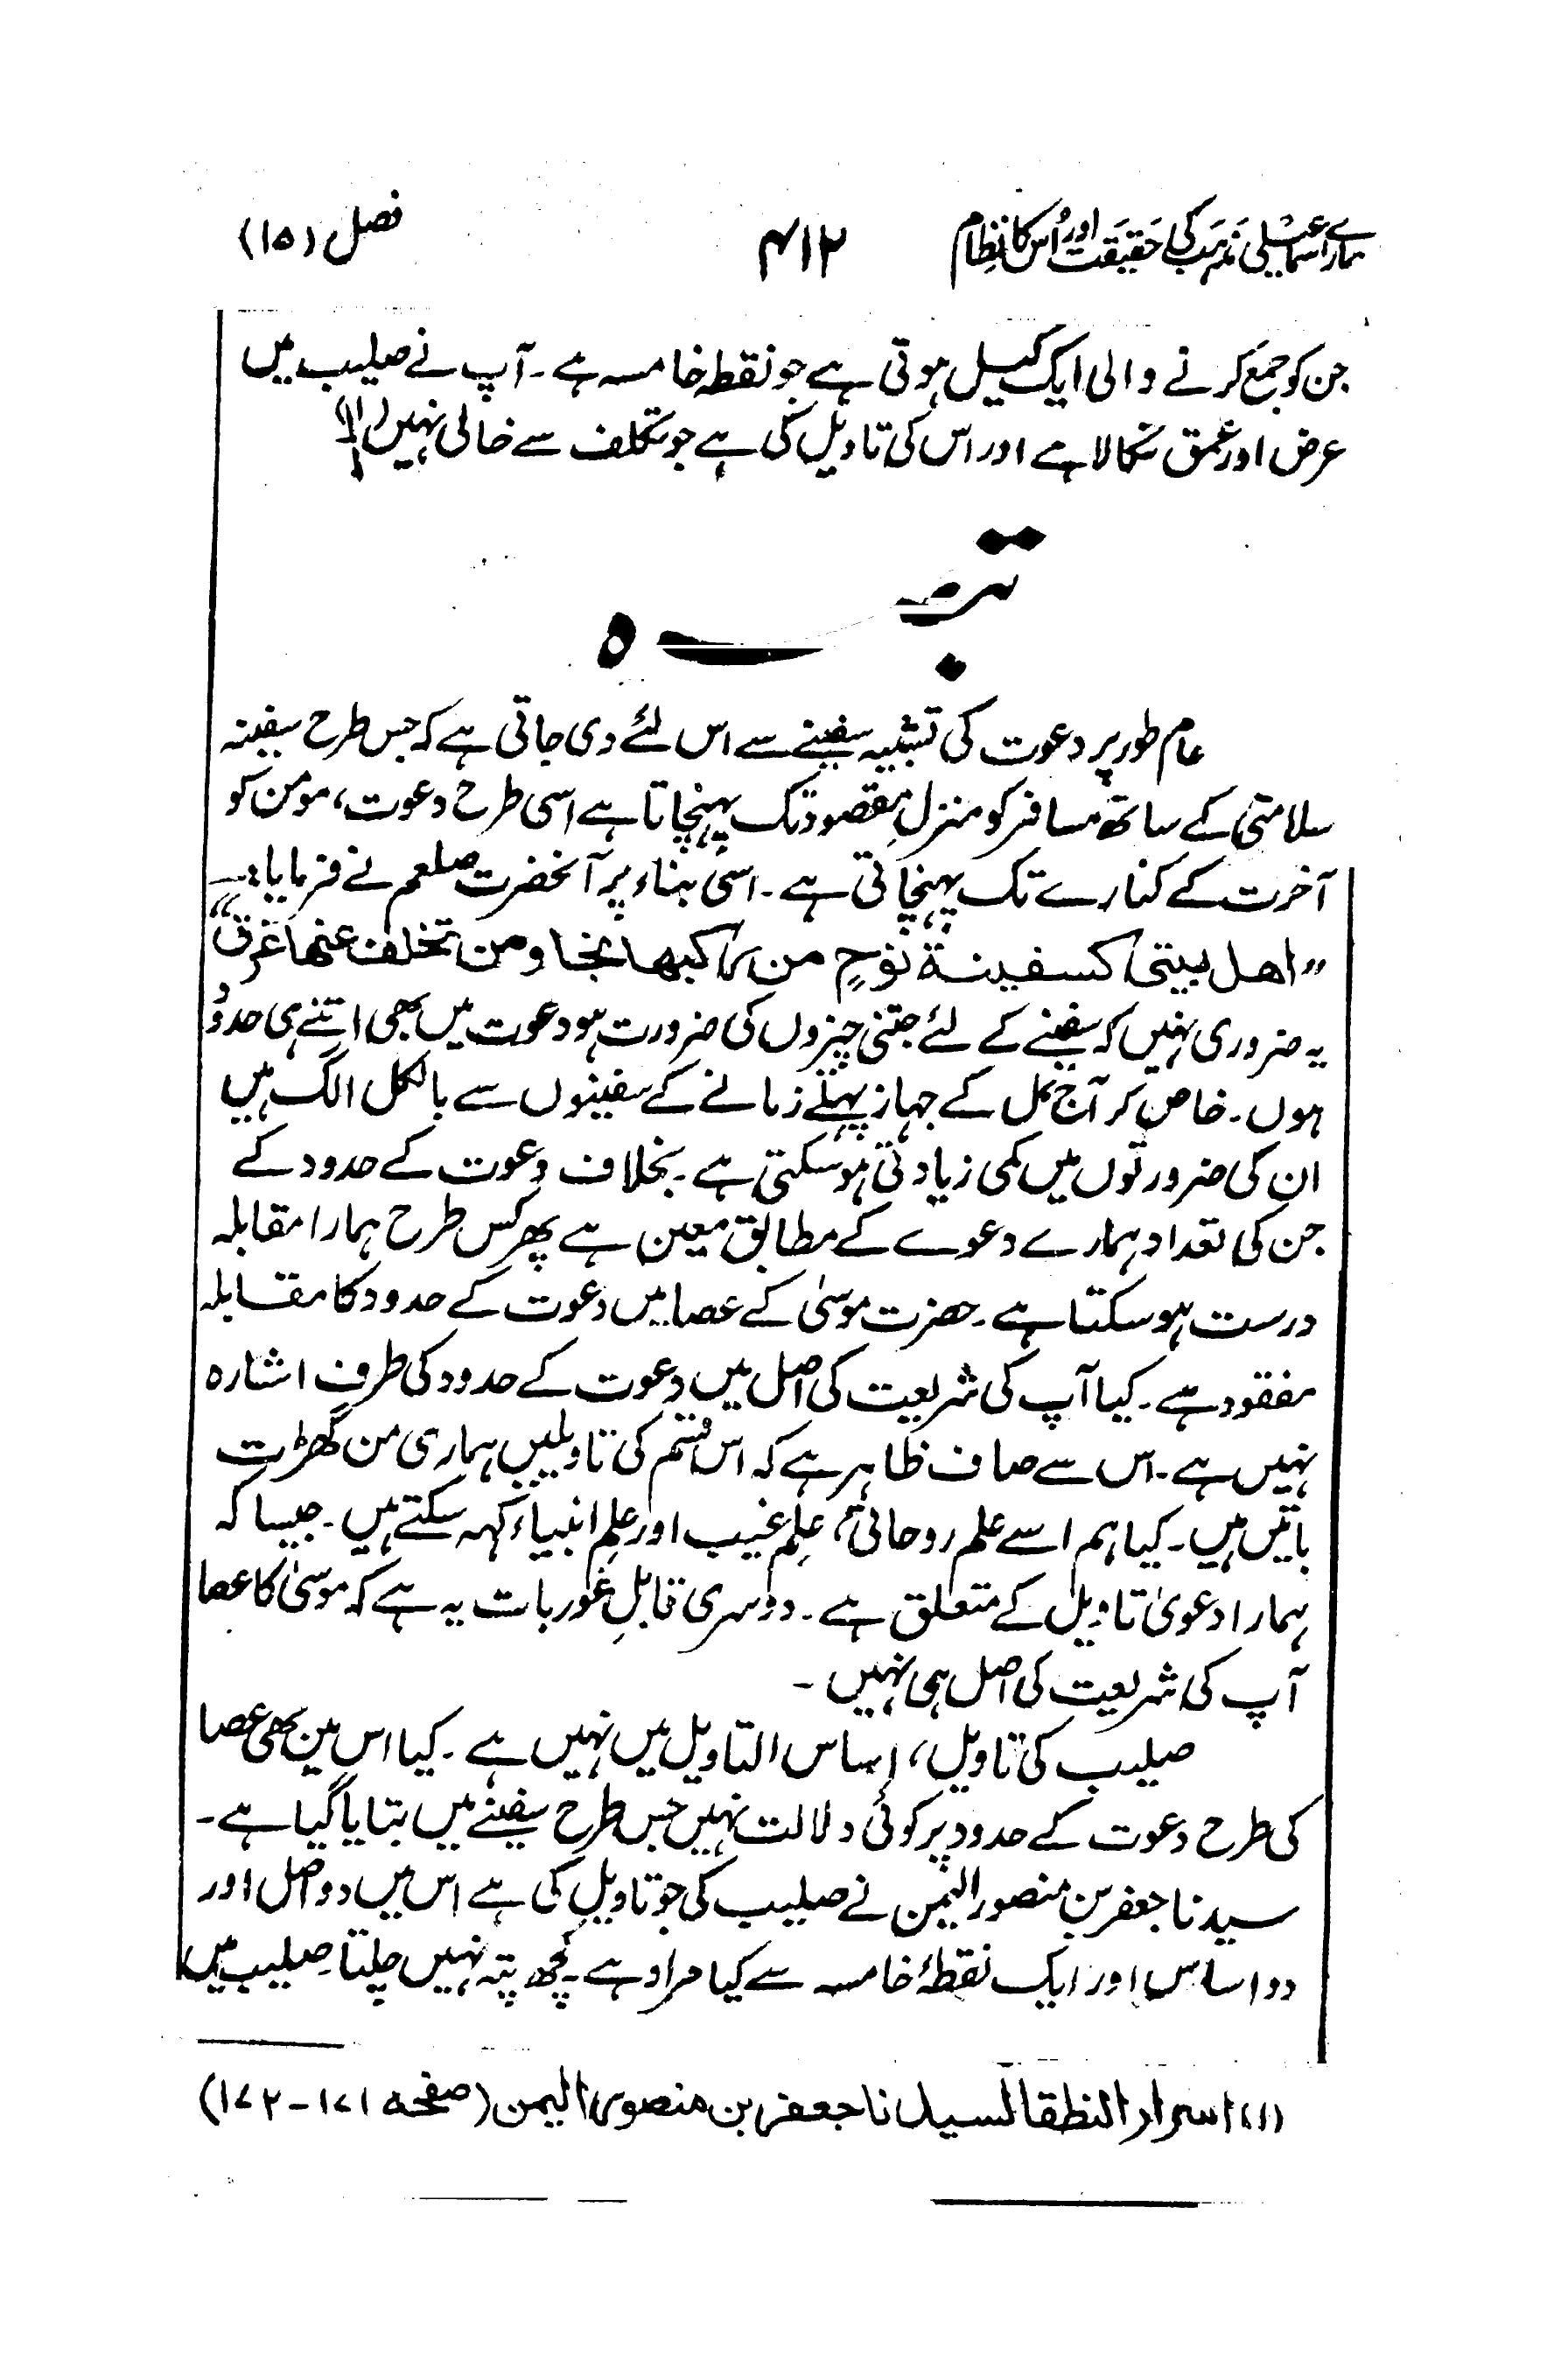 ہمارے اسماعیلی مذہب کی حقیقت اور اُس کا نظام ۴۱۲ فصل (۱۵)
جن کو جمع کرنے والی ایک کیل ہوتی ہے جو نقطہ خامسہ ہے۔ آپ نے صلیب میں
عرض اور عمق نکالا ہے اور اس کی تاویل کی ہے جو تکلف سے خالی نہیں (۱)
تبصرہ
عام طور پر دعوت کی تشبیہ سفینے سے اس لئے دی جاتی ہے کہ جس طرح سفینہ
سلامتی کے ساتھ مسافر کو منزلِ مقصود تک پہنچاتا ہے اسی طرح دعوت، مومن کو
آخرت کے کنارے تک پہنچاتی ہے۔ اسی بناء پر آنحضرت صلعم نے فرمایا:۔
"اهل بیتی کسفینة نوحٍ من رکبها نجا ومن تخلف عنها غرق"
یہ ضروری نہیں کہ سفینے کے لئے جتنی چیزوں کی ضرورت ہو دعوت میں بھی اتنے ہی حدود
ہوں۔ خاص کر آج کل کے جہاز پہلے زمانے کے سفینوں سے بالکل الگ ہیں
ان کی ضرورتوں میں کمی زیادتی ہو سکتی ہے۔ بخلاف دعوت کے حدود کے
جن کی تعداد ہمارے دعوے کے مطابق معین ہے پھر کس طرح ہمارا مقابلہ
درست ہو سکتا ہے۔ حضرت موسیٰ کے عصا میں دعوت کے حدود کا مقابلہ
مفقود ہے۔ کیا آپ کی شریعت کی اصل میں دعوت کے حدود کی طرف اشارہ
نہیں ہے۔ اس سے صاف ظاہر ہے کہ اس قسم کی تاویلیں ہماری من گھڑت
باتیں ہیں۔ کیا ہم اسے علم روحانی، علِم غیب اور علِم انبیاء کہہ سکتے ہیں۔ جیسا کہ
ہمارا دعویٰ تاویل کے متعلق ہے۔ دوسری قابلِ غور بات یہ ہے کہ موسیٰ کا عصا
آپ کی شریعت کی اصل ہی نہیں ۔
صلیب کی تاویل، اساس التاویل میں نہیں ہے۔ کیا اس میں بھی عصا
کی طرح دعوت کے حدود پر کوئی دلالت نہیں جس طرح سفینے میں بتایا گیا ہے۔
سیدنا جعفر بن منصور الیمن نے صلیب کی جو تاویل کی ہے اس میں دو اصل اور
دو اساس اور ایک نقطۂ خامسہ سے کیا مراد ہے۔ کچھ پتہ نہیں چلتا۔ صلیب میں
(۱) اسرار النطقا لسیدنا جعفر بن منصور الیمن (صفحہ ۱۷۱ - ۱۷۲)